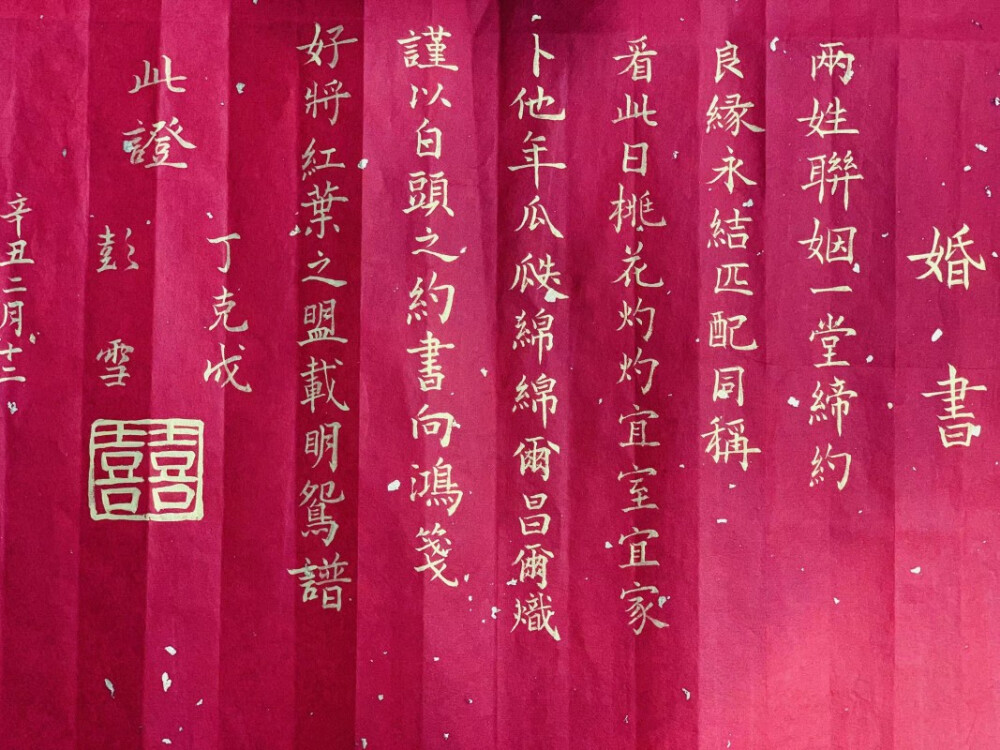 婚書
兩姓聯姻一堂締約
良緣永結匹配同稱
看此日桃花灼灼宜室宜家
卜他年瓜瓞綿綿爾昌爾熾
謹以白頭之約書向鴻箋
好將紅葉之盟載明鴛譜
此證
丁克成
彭雪
囍
辛丑二月十二